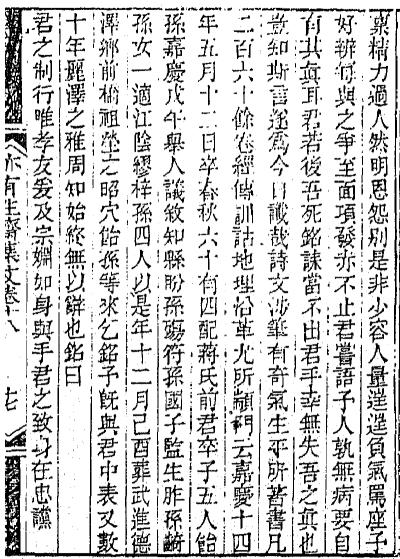 稟精力過人然明恩怨別是非少容人量逞逞負氣罵座予
好辯每與之爭至面項發赤不止君嘗語予人孰無病要自
有其眞耳君若後吾死銘誄當不出君手幸無失吾之眞也
豈知斯言遂爲今日讖哉詩文涉筆有奇氣生平所著書凡
二百六十餘卷經傳訓詁地理沿革尤所顓門云嘉慶十四
年五月十二日卒春秋六十有四配蔣氏前君卒子五人飴
孫嘉慶戊午舉人議敘知縣盼孫殤符孫國子監生胙孫齮
孫女一適江陰繆梓孫四人以是年十二月己酉葬武進德
澤鄉前橋祖塋之昭穴飴孫等來乞銘予旣與君中表又數
十年麗澤之雅周知始終無以辭也銘曰
君之制行唯孝友爰及宗婣如身與手君之致身在忠讜
亦有生齋集文卷十八 十七